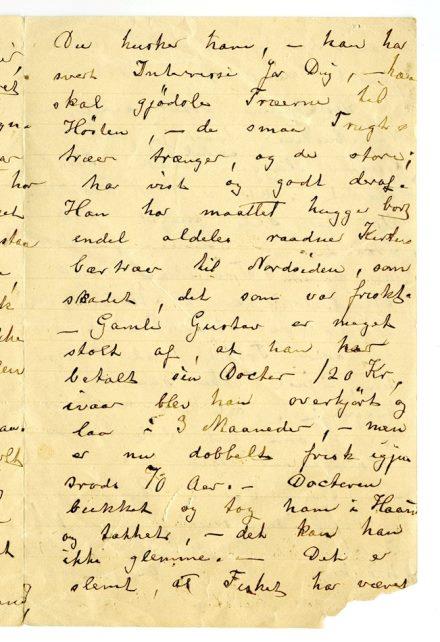 Du husker ham, – han har
svært Interesse for Dig, – han
skal gjødsle Træerne til
Høsten, – de smaa Frugt=
træer trænger, og de store,
har vist og godt deraf.
Han har maattet hugge bort
endel aldeles raadne Kirse
bærtræer til Nordsiden, som
skadet, det som var friskt.
– Gamle Gustav er meget
stolt af, at han har
betalt sin Docter 120 Kr,
ivaar blev han overkjørt og
laa i 3 Maaneder, – men
er nu dobbelt frisk igjen
trods 70 Aar. – Docteren
bukket og tog ham i Haan
og takket, – det kan han
ikke glemme. – Det er
slemt, at Fisket har været